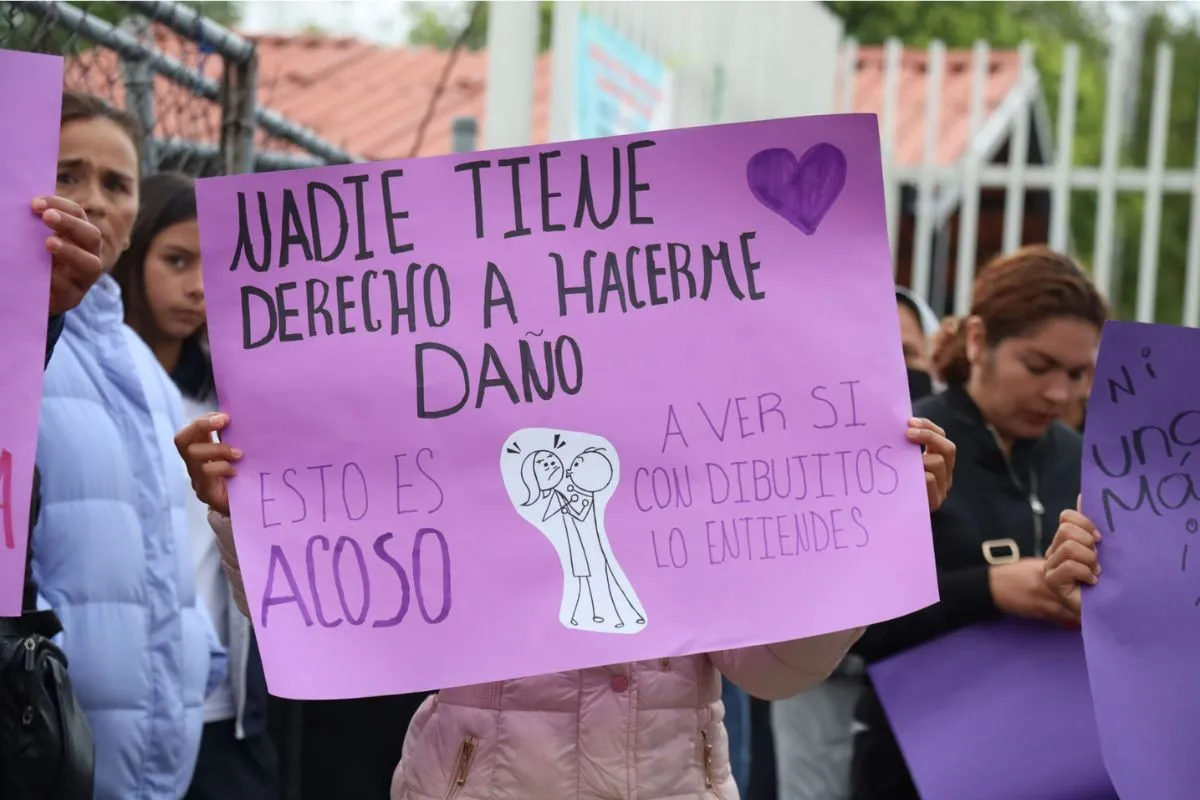 NADIE TIENE
DERECHO A HACERME
DAÑO
ESTO ES
ACOSO
A VER SI
CON DIBUJITOS
LO ENTIENDES
NI
UNA
MÁ